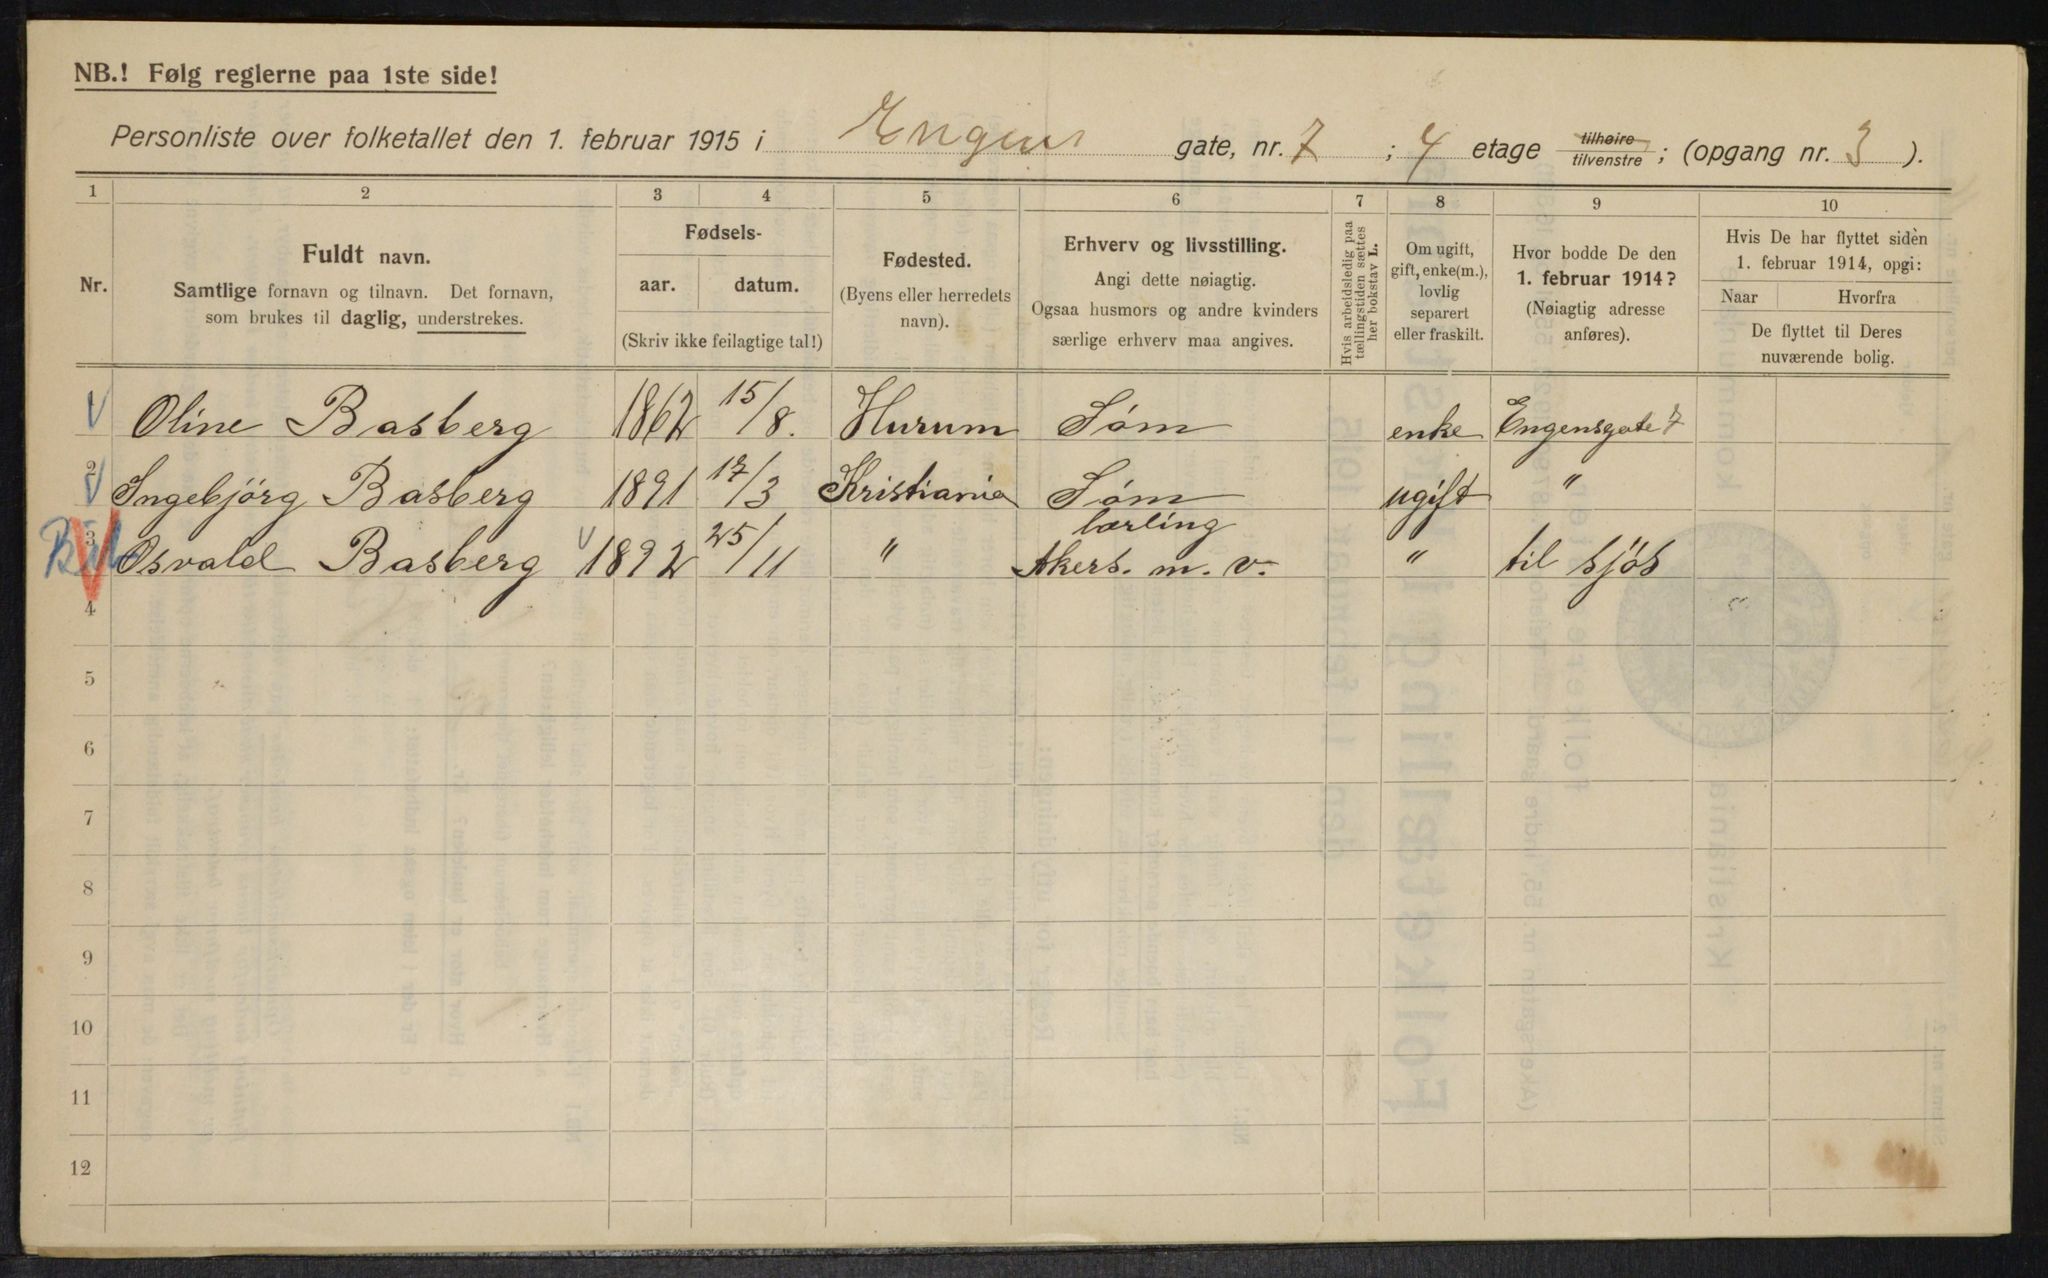 NB.! Følg reglerne paa 1ste side!
Personliste over folketallet den 1. februar 1915 i Engens gate, nr. 7 ; 4 etage tilhøire tilvenstre ; (opgang nr. 3 ).
1 2 3 4 5 6 7 8 9 10
Nr.
Fuldt navn.
Samtlige fornavn og tilnavn. Det fornavn,
som brukes til daglig, understrekes.
Fødsels-
aar. datum.
(Skriv ikke feilagtige tal!)
Fødested.
(Byens eller herredets
navn).
Erhverv og livsstilling.
Angi dette nøiagtig.
Ogsaa husmors og andre kvinders
særlige erhverv maa angives.
Hvis arbeidsledig paa
tællingstiden sættes
her bokstav L.
Om ugift,
gift, enke(m.),
lovlig
separert
eller fraskilt.
Hvor bodde De den
1. februar 1914?
(Nøiagtig adresse
anføres).
Hvis De har flyttet siden
1. februar 1914, opgi:
Naar Hvorfra
De flyttet til Deres
nuværende bolig.
Oline Basberg 1862 15/8. Hurum Søm enke Engensgate 7
2 Ingebjörg Basberg 1891 17/3 Kristiania Søm ugift "
3 Osvald Basberg 1892 25/11 " lærling Akers. m. v. " til sjøs
4
5
6
7
8
9
10
11
12